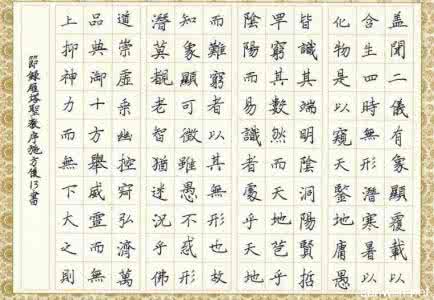 盖聞二儀有象顯覆載以
含生四時無形潛寒暑以
化物是以窺天鑒地庸愚
皆識其端明陰洞陽賢哲
罕窮其數然而天地苞乎
陰陽而易識者處乎天地
而難窮者以其無形也故
知象顯可徵雖愚不惑形
潛莫覩在智猶迷況乎佛
道崇虛乘幽控寂弘濟萬
品典御十方舉威靈而無
上抑神力而無下大之則
節錄雁塔聖教序施方俊13書